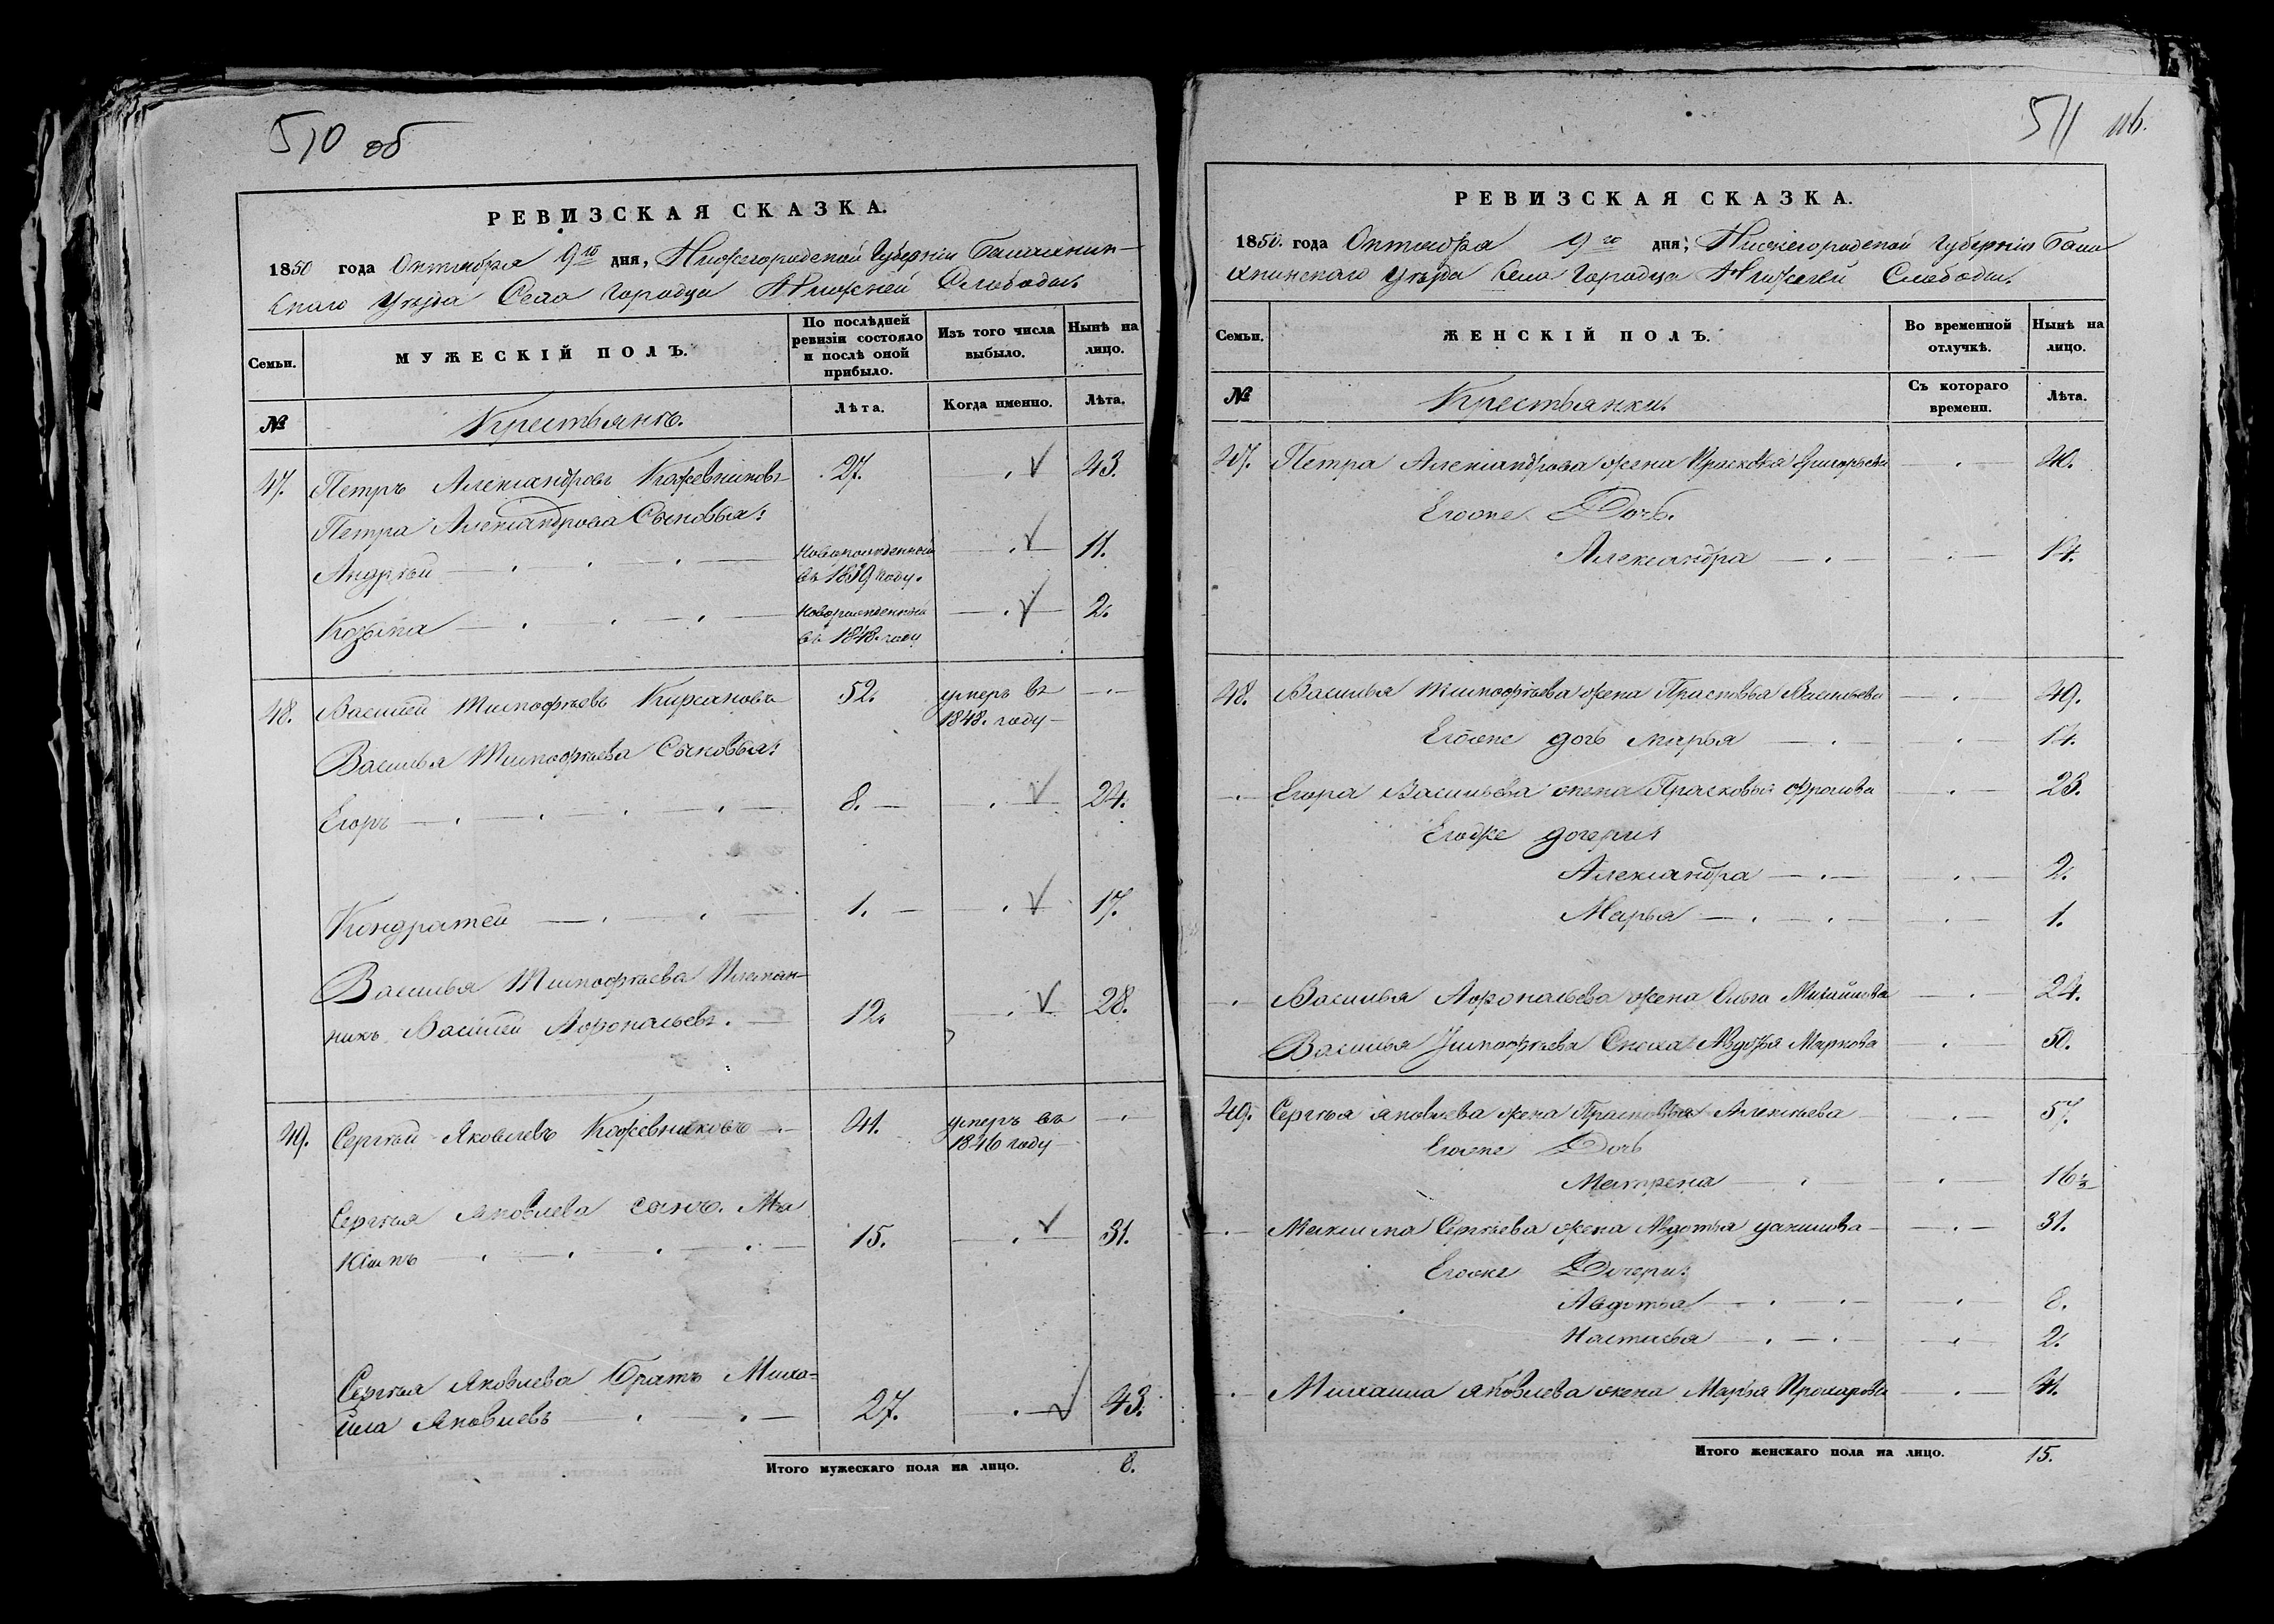 510 об
РЕВИЗСКАЯ СКАЗКА.
1850 года Октября 9го дня, Нижегородской Губернiи Балахнин-
скаго Уѣзда Села Городца Нижней Слободы.
Семьи.
МУЖЕСКІЙ ПОЛЪ.
По послѣдней ревизіи состояло и послѣ оной прибыло.
Изъ того числа выбыло.
Нынѣ на лицо.
№
Крестьянъ.
Лѣта.
Когда именно.
Лѣта.
47. Петръ Александровъ Кожевниковъ 27. 43.
Петра Александрова Сыновья:
Андрѣй новорожденной въ 1839 году. 11.
Козьма новорожденной въ 1848. году 2.
48. Василей Тимофѣевъ Кирсановъ 52. умеръ въ 1848. году
Василья Тимофѣева Сыновья:
Егоръ 8. 24.
Кондратей 1. 17.
Василья Тимофѣева Племян-
никъ Василей 12. 28.
49. Сергѣй Яковлевъ Кожевниковъ 41. умеръ въ 1846 году
Сергѣя Яковлева сынъ. Ма
ксимъ 15. 31.
Сергѣя Яковлева Братъ Миха-
йла Яковлевъ 27. 43.
Итого мужескаго пола на лицо. 8.
511 116.
РЕВИЗСКАЯ СКАЗКА.
1850. года Октября 9го дня, Нижегородской Губернiи Бала
хнинскаго Уѣзда Села Городца Нижней Слободы.
Семьи.
ЖЕНСКІЙ ПОЛЪ.
Во временной отлучкѣ.
Нынѣ на лицо.
№
Крестьянки.
Съ котораго времени.
Лѣта.
47. Петра Александрова жена Прасковья Григорьева 40.
Егоже Дочь.
Александра 14.
48. Василья Тимофѣева жена Васильева 49.
Егоже дочь Марья 14.
Егора Васильева жена Прасковья Фролова 23.
Егоже дочери:
Александра 2.
Марья 1.
Василья жена Ольга Михайлова 24.
Василья Тимофѣева Сноха Авдотья Маркова 50.
49. Сергѣя Яковлева жена Прасковья Алексѣева 57.
Егоже Дочь
Матрена 16½
Максима Сергѣева жена Авдотья Данилова 31.
Егоже Дочери:
Авдотья 8.
Настасья 2.
Михайла Яковлева жена Марья Прохорова 41.
Итого женскаго пола на лицо. 15.